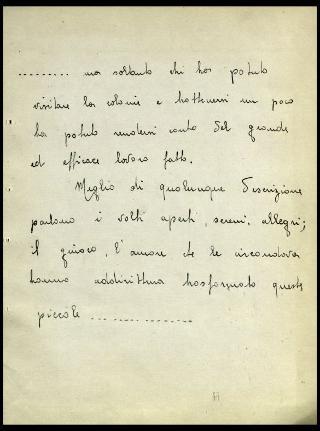 ......... ma soltanto chi ha potuto
visitare la colonia e trattenersi un poco
ha potuto rendersi conto del grande
ed efficace lavoro fatto.
Meglio di qualunque descrizione
parlano i volti aperti, sereni, allegri;
il giuoco, l'amore che le circondava
hanno addirittura trasformato queste
piccole ..................